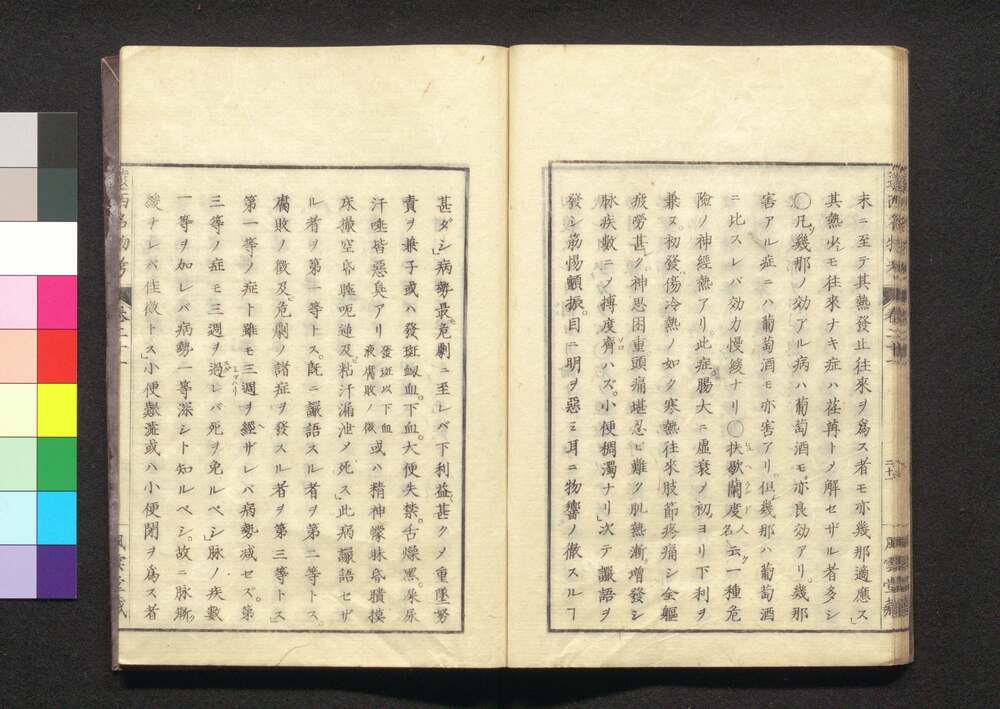 未ニ至テ其熱發止往來ヲ爲ス者モ亦幾那適應ス」
其熱少モ往來ナキ症ハ荏苒トメ解セザル者多シ
〇凡幾那ノ効アル病ハ葡萄酒モ亦良効アリ。幾那
害アル症ニハ葡萄酒モ亦害アリ。但幾那ハ葡萄酒
ニ比スレバ効力慢緩ナリ〇扶歇蘭度人名云一種危
險ノ神經熱アリ。此症腸大ニ虚衰メ初ヨリ下利ヲ
兼ヌ。初發傷冷熱ノ如ク寒熱往來肢節疼痛シ全軀
疲勞甚シク。神思困重頭痛堪忍ビ難ク肌熱漸增發シ
脉疾數ニメ搏度齊ハズ。小便稠濁ナリ」次テ譫語ヲ
發シ筋惕顫振。目ニ明ヲ惡ミ耳ニ物響ノ徹スルヿ
甚ダシ」病勢最危劇ニ至レバ下利益甚クメ重墜努
責ヲ兼子或ハ發斑衂血。下血。大便失禁。舌燥黑。屎尿
汗唾皆惡臭アリ發斑以下血液腐敗ノ徴或ハ精神懞昧昏憒摸
床撮空昏睡呃逆及ビ粘汗漏泄メ死ス」此病譫語セザ
ル者ヲ第一等トス。既ニ譫語スル者ヲ第二等トス。
腐敗ノ徴及危劇ノ諸症ヲ發スル者ヲ第三等トス」
第一等ノ症ト雖モ三週ヲ經ザレバ病勢减セズ。第
三等ノ症モ三週ヲ過レバ死ヲ免ルベシ」脉ノ疾數
一等ヲ加レバ病勢一等深シト知ルベシ。故ニ脉漸
緩ナレバ佳徴トス」小便難澁或ハ小便閉ヲ爲ス者